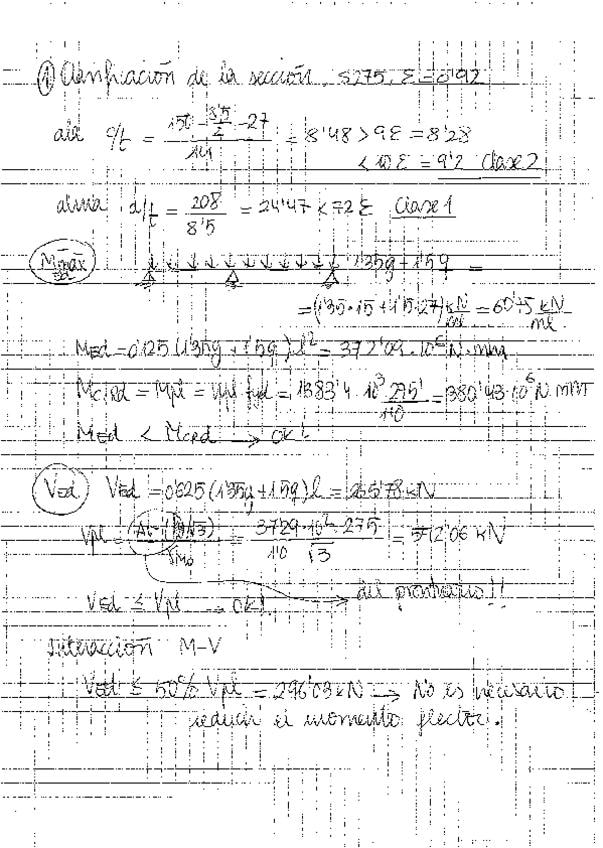 ① Clasificación de la sección. S275, ε = 0'92
ala c/t = (150 - 8'5/2 - 27)/14'1 = 8'48 > 9ε = 8'28
< 10ε = 9'2 Clase 2
alma d/t = 208/8'5 = 24'47 < 72ε Clase 1
Mmáx Ed 1'35g + 1'5q =
= (1'35·15 + 1'5·27) kN/ml = 60'75 kN/ml
MEd = 0'125 (1'35g + 1'5q) l² = 372'09·10⁶ N·mm
Mc,Rd = Mpl = Wpl fyd = 1383'4·10³ 275/1'0 = 380'43·10⁶ N mm
MEd < McRd → OK!
VEd VEd = 0'625 (1'35g + 1'5q) l = 265'78 kN
Vpl = Av·(fy/√3)/γM0 = 3729·10²·275/1'0 √3 = 592'06 kN
VEd ≤ Vpl → OK! → del prontuario!!
Interacción M-V
VEd ≤ 50% Vpl = 296'03 kN → No es necesario
reducir el momento flector.